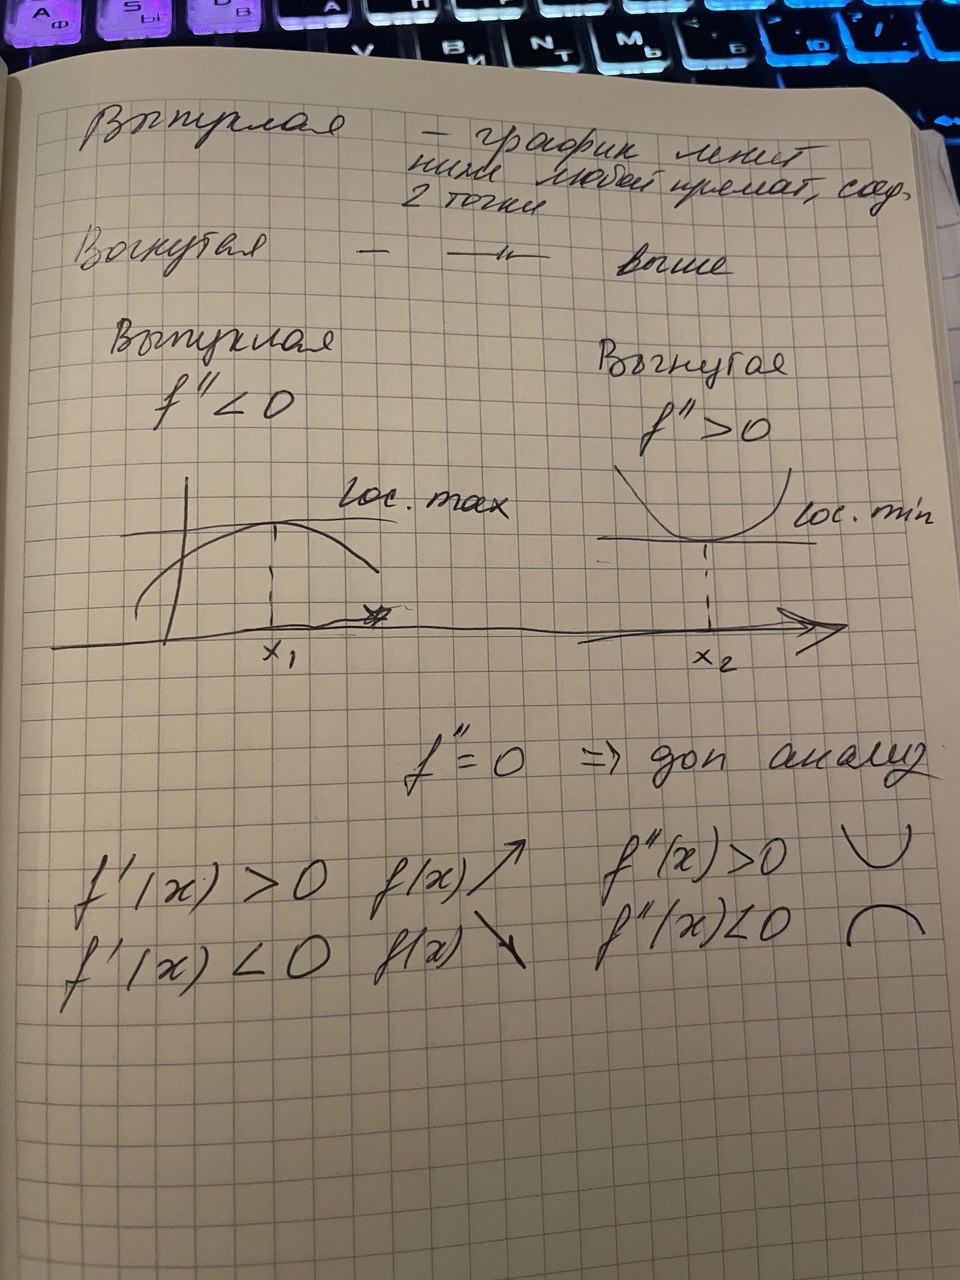 Выпуклая - график лежит
ниже любой прямой, соед.
2 точки
Вогнутая - —"— выше
Выпуклая
f'' < 0
Вогнутая
f'' > 0
loc. max
loc. min
x₁
x₂
f'' = 0 => доп анализ
f'(x) > 0 f(x) ↗ f''(x) > 0 ◡
f'(x) < 0 f(x) ↘ f''(x) < 0 ◠